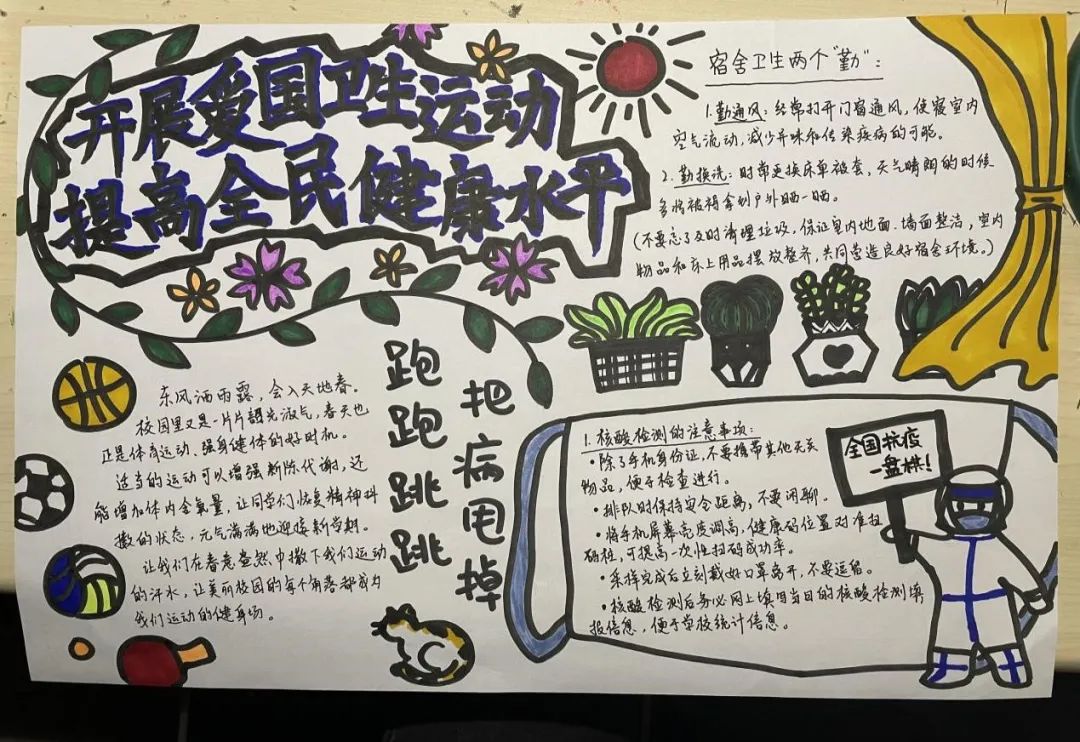 开展爱国卫生运动
提高全民健康水平
宿舍卫生两个"勤"：
1.勤通风：经常打开门窗通风，使寝室内
空气流动，减少异味和传染疾病的可能。
2.勤换洗：时常更换床单被套，天气晴朗的时候
多将被褥拿到户外晒一晒。
(不要忘了及时清理垃圾，保证室内地面、墙面整洁，室内
物品和床上用品摆放整齐，共同营造良好宿舍环境。)
东风洒雨露，会入天地春。
校园里又是一片片春光淑气，春天也
正是体育运动、强身健体的好时机。
适当的运动可以增强新陈代谢，还
能增加体内含氧量，让同学们恢复精神抖
擞的状态，元气满满地迎接新学期。
让我们在春意盎然中撒下我们运动
的汗水，让美丽校园的每个角落都成为
我们运动的健身场。
跑跑跳跳
把病甩掉
1.核酸检测的注意事项：
•除了手机身份证，不要携带其他无关
物品，便于检查进行。
•排队时保持安全距离，不要闲聊。
•将手机屏幕亮度调高，健康码位置对准扫
码桩，可提高一次性扫码成功率。
•采样完成后立刻戴好口罩离开，不要逗留。
•核酸检测后务必网上填写当日的核酸检测填
报信息，便于学校统计信息。
全国抗疫
一盘棋！